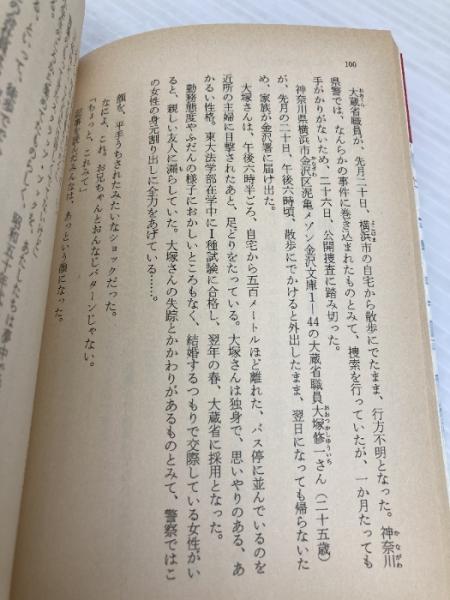 100
大蔵省職員が、先月二十日、横浜市の自宅から散歩にでたまま、行方不明となった。神奈川
県警では、なんらかの事件に巻き込まれたものとみて、捜索を行っていたが、一か月たっても
手がかりがないため、二十六日、公開捜査に踏み切った。
神奈川県横浜市金沢区泥亀メゾン金沢文庫1―44の大蔵省職員大塚修一さん（二十五歳）
が、先月の二十日、午後六時頃、散歩にでかけると外出したまま、翌日になっても帰らないた
め、家族が金沢署に届け出た。
大塚さんは、午後六時半ごろ、自宅から五百メートルほど離れた、バス停に並んでいるのを
近所の主婦に目撃されたあと、足どりをたっている。大塚さんは独身で、思いやりのある、あ
かるい性格。東大法学部在学中にⅠ種試験に合格し、翌年の春、大蔵省に採用となった。
勤務態度やふだんの様子におかしいところもなく、結婚するつもりで交際している女性がい
ると、親しい友人に漏らしていた。大塚さんの失踪とかかわりがあるものとみて、警察ではこ
の女性の身元割り出しに全力をあげている……。
顔を、平手うちされたみたいなショックだった。
なによ、これ。お兄ちゃんとおんなじパターンじゃない。
「ちょっと、これみて」
記事を読んだみんなは、あっという顔になった。